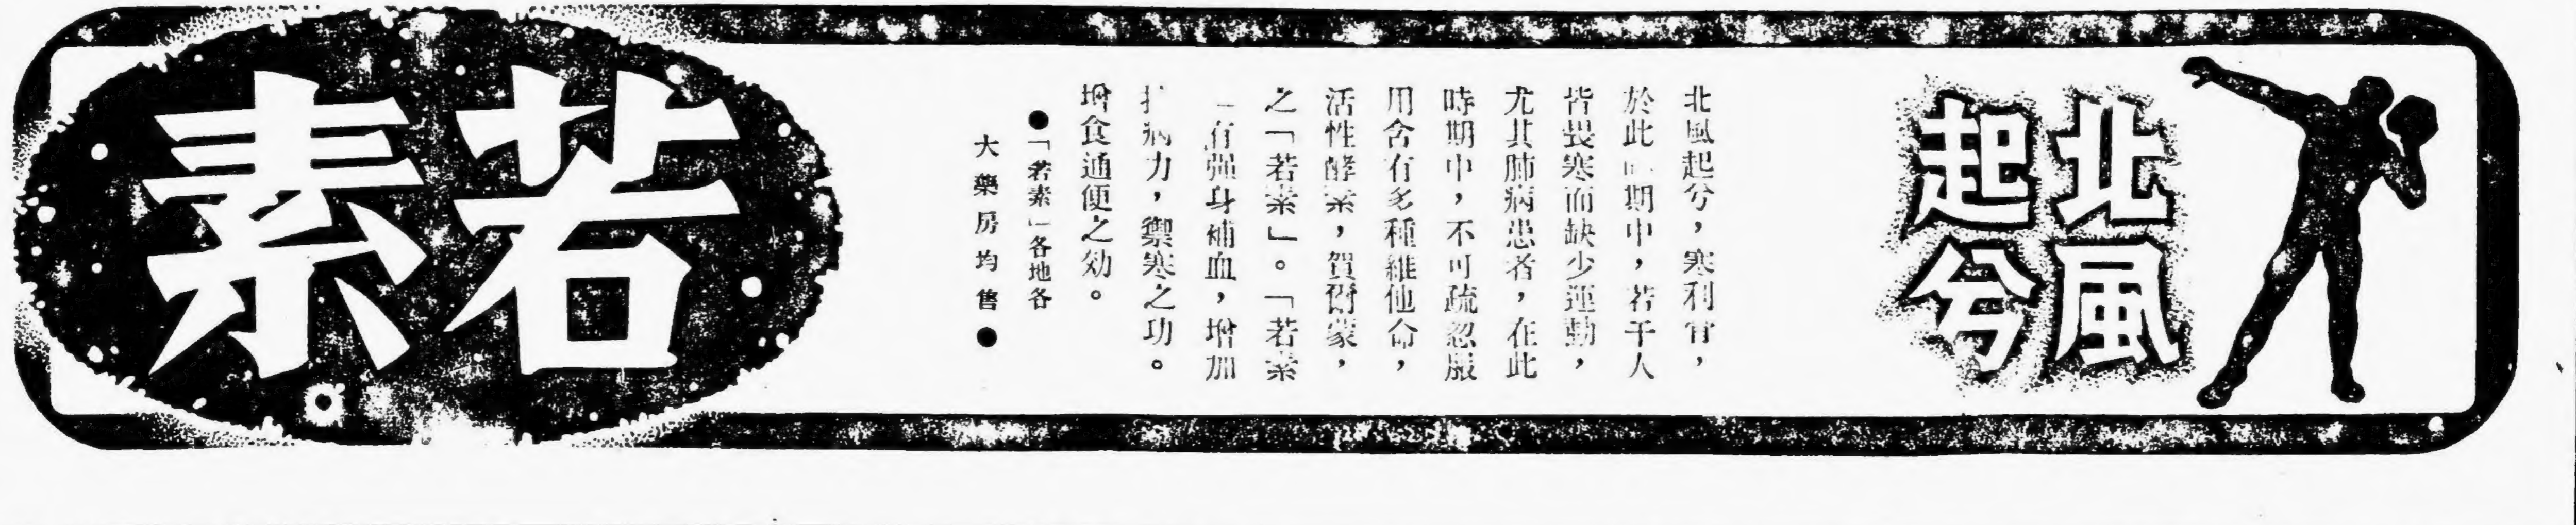 北風
起兮
北風起兮，寒利官，
於此期中，若干人
皆畏寒而缺少運動，
尤其肺病患者，在此
時期中，不可疏忽服
用含有多種維他命，
活性酵素，賀爾蒙，
之「若素」。「若素
有强身補血，增加
病力，禦寒之功。
增食通便之効。
●「若素」各地各
大藥房均售●
若素